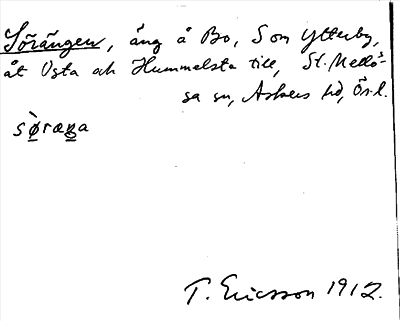 Sörängen, äng å Bo, S om Ytterby,
åt Usta och Hummelsta till, St. Mellö-
sa sn, Askers hd, Ös-l.
T. Ericsson 1912.